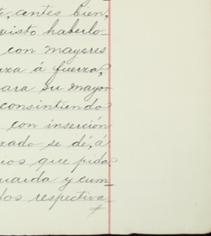 e, antes bien,
visto haberlo
con mayores
rza á fuerza,
ara su mayor
consintiendo
con inserción
zado se dé, á
ios que pida
uarda y cum
dos respectiva